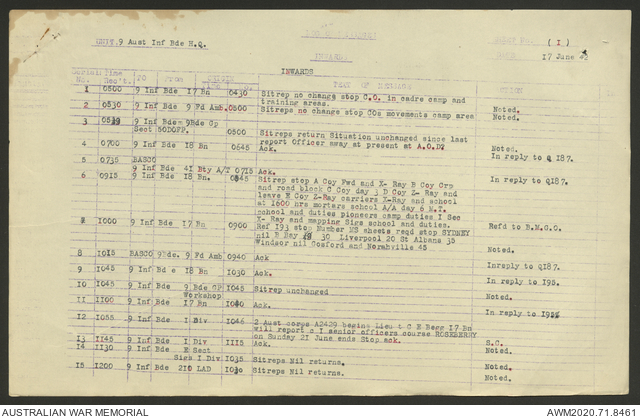 UNIT. 9 Aust Inf Bde H.Q.
( I )
INWARDS
17 June
INWARDS
Serial No. Time Rec'd. TO From TEXT OF MESSAGE ACTION
1 0500 9 Inf Bde 17 Bn 0430 Sitrep no change stop C.O. in cadre camp and
training areas. Noted.
2 0530 9 Inf Bde 9 Fd Amb. 0500 Sitreps no change stop COs movements camp area Noted.
3 9 Inf Bde 9Bde Gp
Sect 50DOFP. 0500 Sitreps return Situation unchanged since last
report Officer away at present at A.O.D? Noted.
4 0700 9 Inf Bde 18 Bn 0645 Ack. In reply to Q 187.
5 0735 BASCO
9 Inf Bde 41 Bty A/T 0715 Ack. In reply to Q187.
6 0915 9 Inf Bde 18 Bn. 0845 Sitrep stop A Coy Fwd and X- Ray B Coy Grp
and road block C Coy day 3 D Coy Z- Ray and
leave E Coy Z-Ray carriers X-Ray and school
at 1600 hrs morters school A/A day 6 M.T.
school and duties pioneers camp duties I See
X- Ray and mapping Sigs school and duties.
7 1000 9 Inf Bde 17 Bn 0900 Ref 193 stop Number MS sheets reqd stop SYDNEY
nil B Bay 30 Liverpool 20 St Albans 35
Windsor nil Gosford and Norahville 45 Refd to B.M.G.O. Noted.
8 1015 BASCO 9Bde. 9 Fd Amb 0940 Ack Inreply to Q187.
9 1045 9 Inf Bd e 18 Bn 1030 Ack. In reply to 195.
10 1045 9 Inf Bde 9 Bde GP
Workshop 1045 Sitrep unchanged Noted.
11 1100 9 Inf Bde 17 Bn 1040 Ack. In reply to 195.
12 1055 9 Inf Bde 1 Div 1045 2 Aust corps A2429 begins Lieu t C E Begg 17 Bn
will report c I senior officers course ROSEBERRY
on Sunday 21 June ends Stop ack. S.C.
13 1145 9 Inf Bde 1 Div 1115 Ack. Noted.
14 1130 9 Inf Bde E Sect
Sigs 1 Div 1035 Sitreps Nil returns. Noted.
15 1200 9 Inf Bde 210 LAD 1030 Sitreps Nil returns. Noted.
AUSTRALIAN WAR MEMORIAL
AWM2020.71.8461